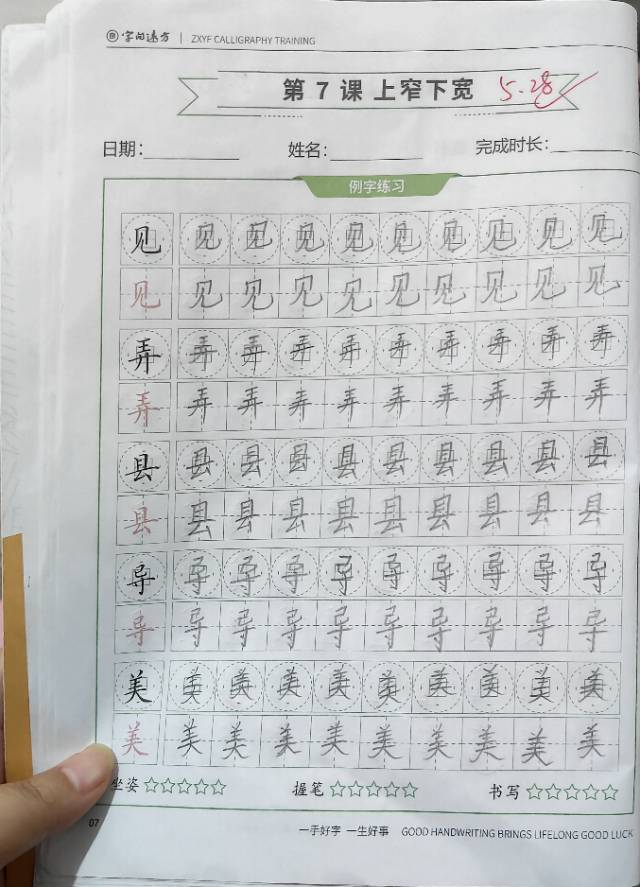 字向远方 | ZXYF CALLIGRAPHY TRAINING
第 7 课 上窄下宽 5.28
日期: 姓名: 完成时长:
例字练习
见 见 见 见 见 见 见 见 见 见
见 见 见 见 见 见 见 见 见 见
弄 弄 弄 弄 弄 弄 弄 弄 弄 弄
弄 弄 弄 弄 弄 弄 弄 弄 弄 弄
县 县 县 县 县 县 县 县 县 县
县 县 县 县 县 县 县 县 县 县
导 导 导 导 导 导 导 导 导 导
导 导 导 导 导 导 导 导 导 导
美 美 美 美 美 美 美 美 美 美
美 美 美 美 美 美 美 美 美 美
坐姿 ☆☆☆☆☆ 握笔 ☆☆☆☆☆ 书写 ☆☆☆☆☆
07 一手好字 一生好事 GOOD HANDWRITING BRINGS LIFELONG GOOD LUCK